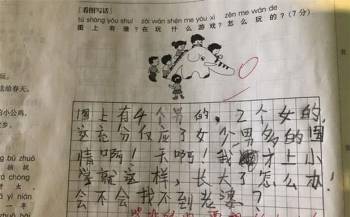 【看图写话】
tú shàng yǒu shuí zài wán shén me yóu xì zěn me wán de
图上有谁？在玩什么游戏？怎么玩的？（7分）
给春天。
的小公鸡。
图上有4个男的，2个女的，
这充分反应了女少男多的国
情啊！天啊！我才上小
学就这样，长大了怎么办！
会不会找不到老婆？